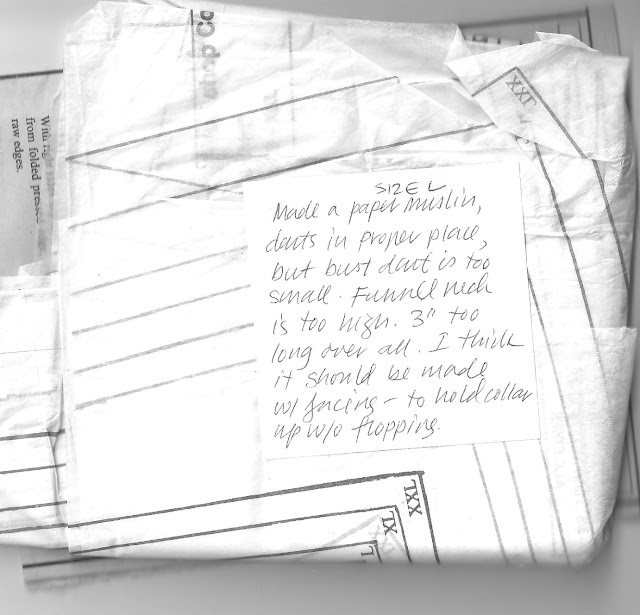 With rig
from folded press
raw edges.
XXL
SIZE L
Made a paper muslin,
darts in proper place,
but bust dart is too
small. Funnel neck
is too high. 3" too
long over all. I think
it should be made
w/ facing - to hold collar
up w/o flopping.
XXL
XL
L